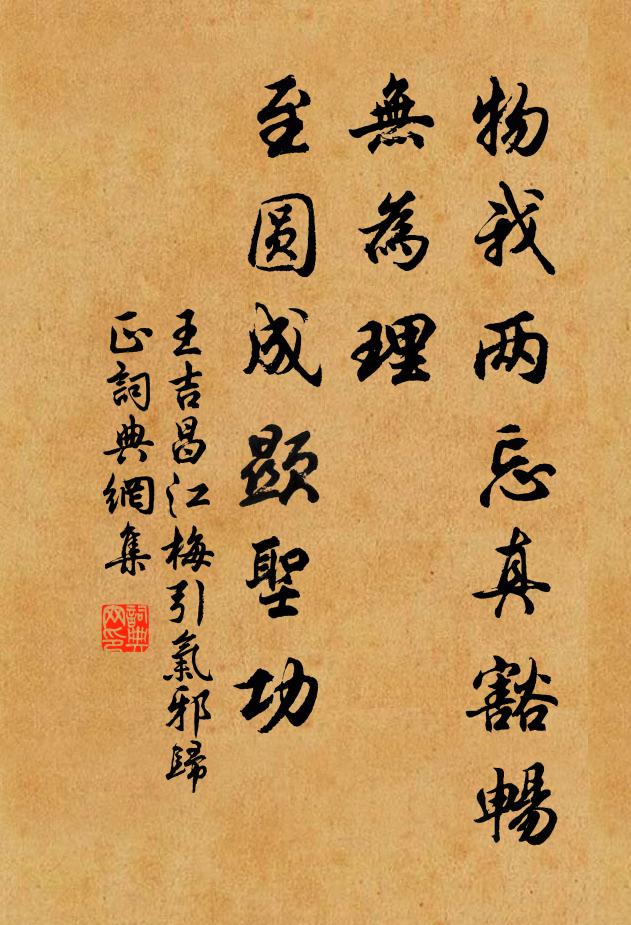 物我两忘真豁暢
無為理
至圆成顯聖功
王吉昌江梅引氣邪歸
正詞典網集
詞典
网印